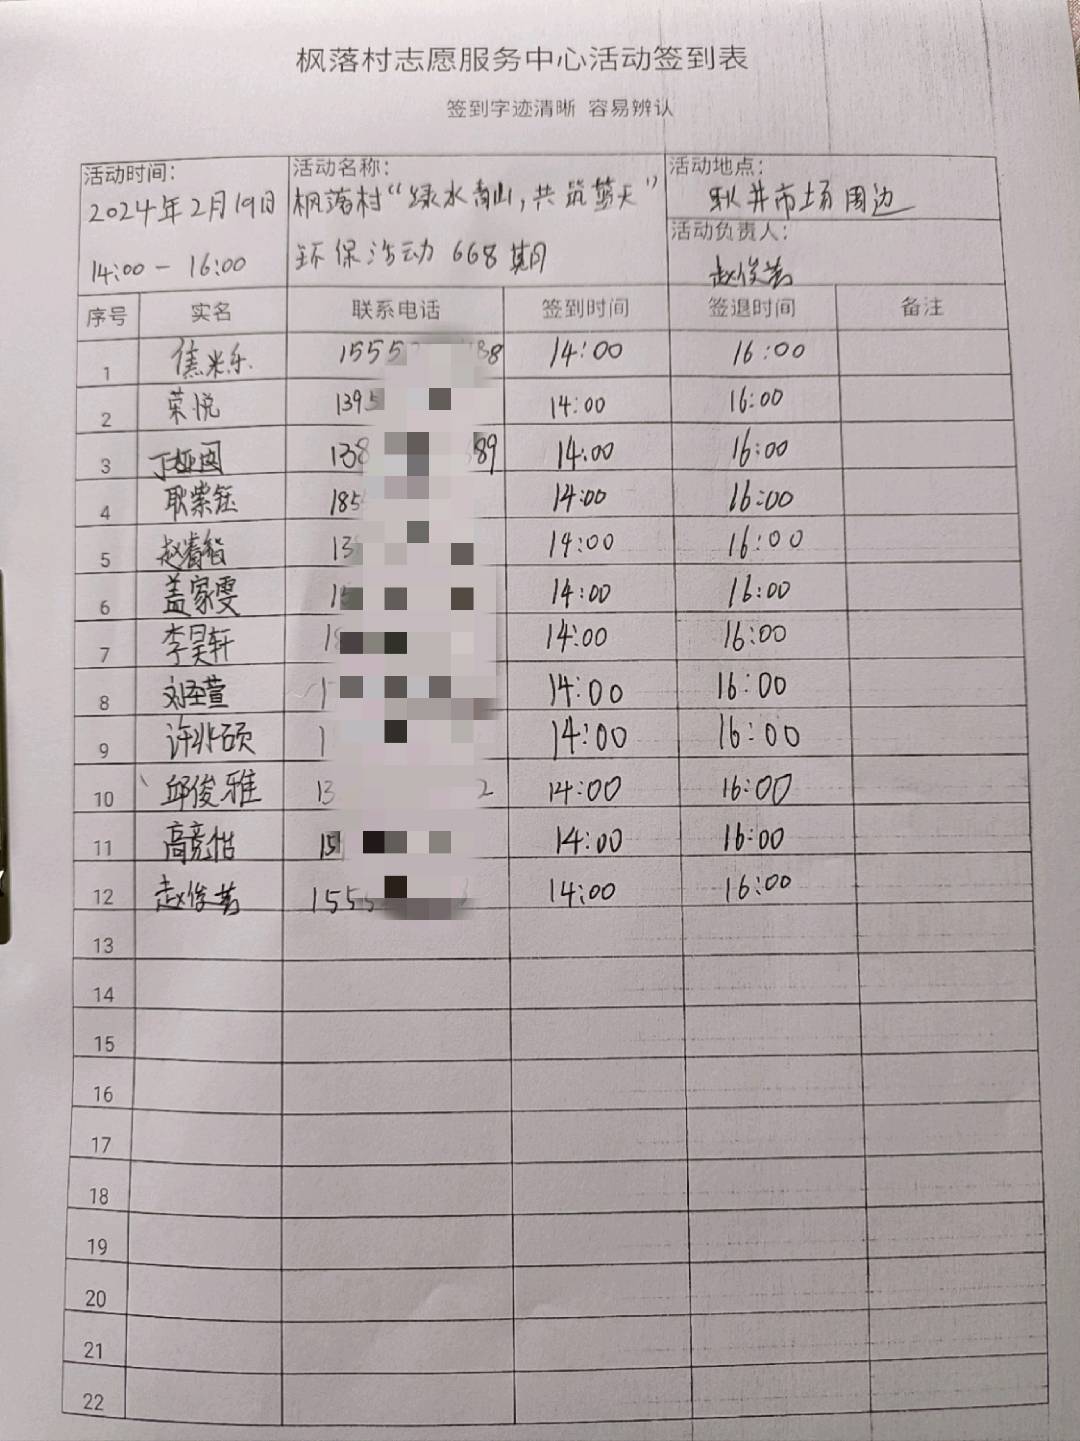 枫落村志愿服务中心活动签到表
签到字迹清晰 容易辨认
活动时间：
2024年2月19日
14:00 - 16:00
活动名称：
枫落村“绿水青山，共筑蓝天”
环保活动 668 期
活动地点：
耿井市场周边
活动负责人：
赵俊茜
序号 实名 联系电话 签到时间 签退时间 备注
1 焦米乐 1555 88 14:00 16:00
2 荣悦 1395 14:00 16:00
3 138 89 14:00 16:00
4 耿紫钰 185 14:00 16:00
5 13 14:00 16:00
6 盖家雯 15 14:00 16:00
7 李昊轩 18 14:00 16:00
8 1 14:00 16:00
9 许兆硕 1 14:00 16:00
10 邱俊雅 13 2 14:00 16:00
11 高竞怡 15 14:00 16:00
12 赵俊茜 1555 14:00 16:00
13
14
15
16
17
18
19
20
21
22